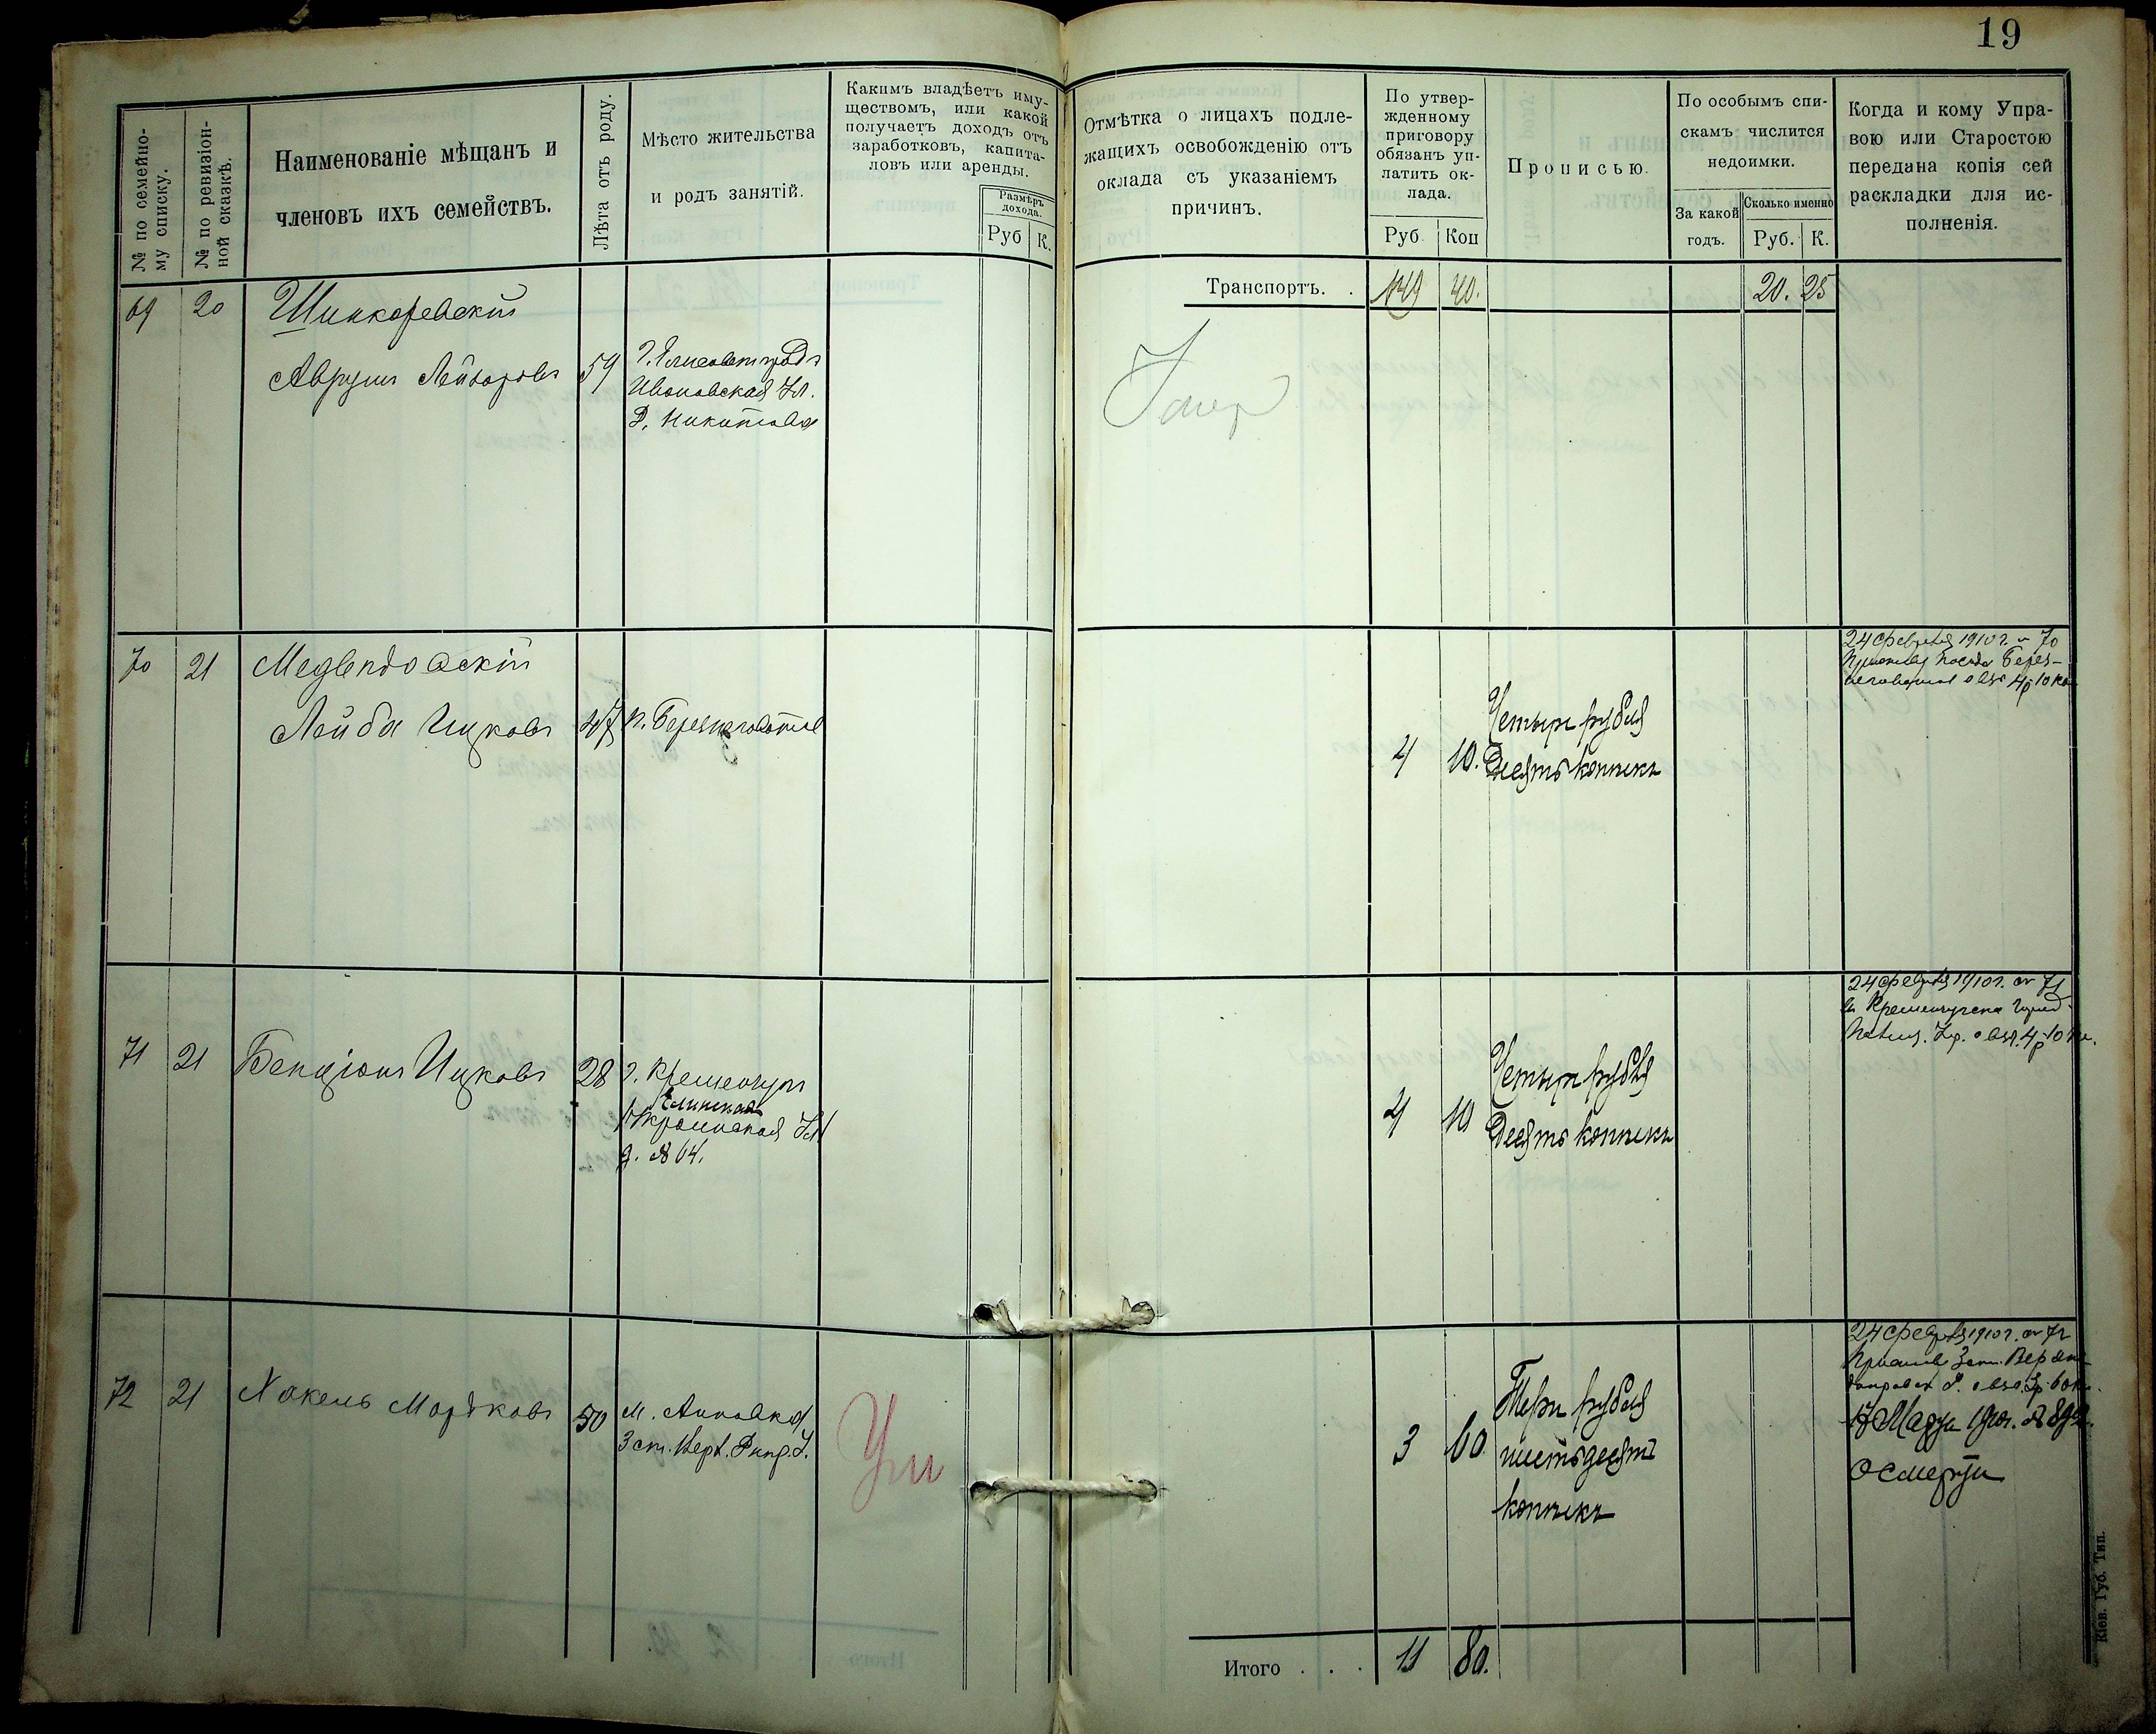 19
№ по семейно-
му списку.
№ по ревизіон-
ной сказкѣ.
Наименованіе мѣщанъ и
членовъ ихъ семействъ.
Лѣта отъ роду.
Мѣсто жительства
и родъ занятій.
Какимъ владѣетъ иму-
ществомъ, или какой
получаетъ доходъ отъ
заработковъ, капита-
ловъ или аренды.
Размѣръ
дохода.
Руб К.
Отмѣтка о лицахъ подле-
жащихъ освобожденію отъ
оклада съ указаніемъ
причинъ.
По утвер-
жденному
приговору
обязанъ уп-
латить ок-
лада.
Руб. Коп
Прописью.
По особымъ спи-
скамъ числится
недоимки.
За какой
годъ.
Сколько именно
Руб. К.
Когда и кому Упра-
вою или Старостою
передана копія сей
раскладки для ис-
полненія.
Транспортъ. . 149 40. 20. 25
69 20 Шинкаревскій
Аврумъ Лейзоровъ 59 г. Елисаветградъ
Ивановская Ул.
Д. Никитова
Умер
70 21 Медвѣдовскій
Лейба Ицковъ 47 п. Березнеговатое
4 10. Четыри рубля
Десять копѣекъ
24 Февраля 1910 г. № 70
4р 10 ко
71 21 Бенціонъ Ицковъ 28 г. Кременчугъ
Ул
д. № 64.
4 10 Четыри рубля
Десять копѣекъ
24 Февраля 1910 г. № 71
въ Кременчугско
4р 10 ко.
72 21 Хакель Мордковъ 50 м. Анновка
3 ст. Верх. Днпр. У.
Ум
3 60 Тери рубля
шестьдесятъ
копѣекъ
24 Февраля 1910 г. № 72
3 ст.
17 Марта
О смерти
Итого . . . 11 80.
Кіев. Губ. Тип.